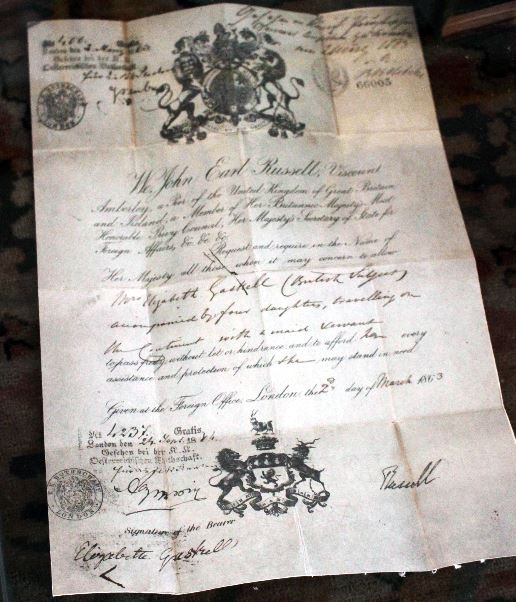 No. 466.
London den 2. März 1863
Gesehen bei der K. K.
Oesterreichischen Botschaft
66005
We, John Earl Russell, Viscount
Amberley, a Peer of the United Kingdom of Great Britain
and Ireland, a Member of Her Britannic Majesty's Most
Honorable Privy Council, Her Majesty's Secretary of State for
Foreign Affairs, &c. &c. &c.
Request and require in the Name of
Her Majesty all those whom it may concern to allow
Mrs Elizabeth Gaskell (British Subject)
accompanied by four daughters, travelling on
the Continent with a maid servant
to pass freely without let or hindrance, and to afford her every
assistance and protection of which she may stand in need
Given at the Foreign Office, London, the 2d day of March 1863
No. 4237. Gratis.
London den 24 Sept. 1864.
Gesehen bei der K. K.
Oesterreichischen Bothschaft.
Russell
Signature of the Bearer
Elizabeth Gaskell